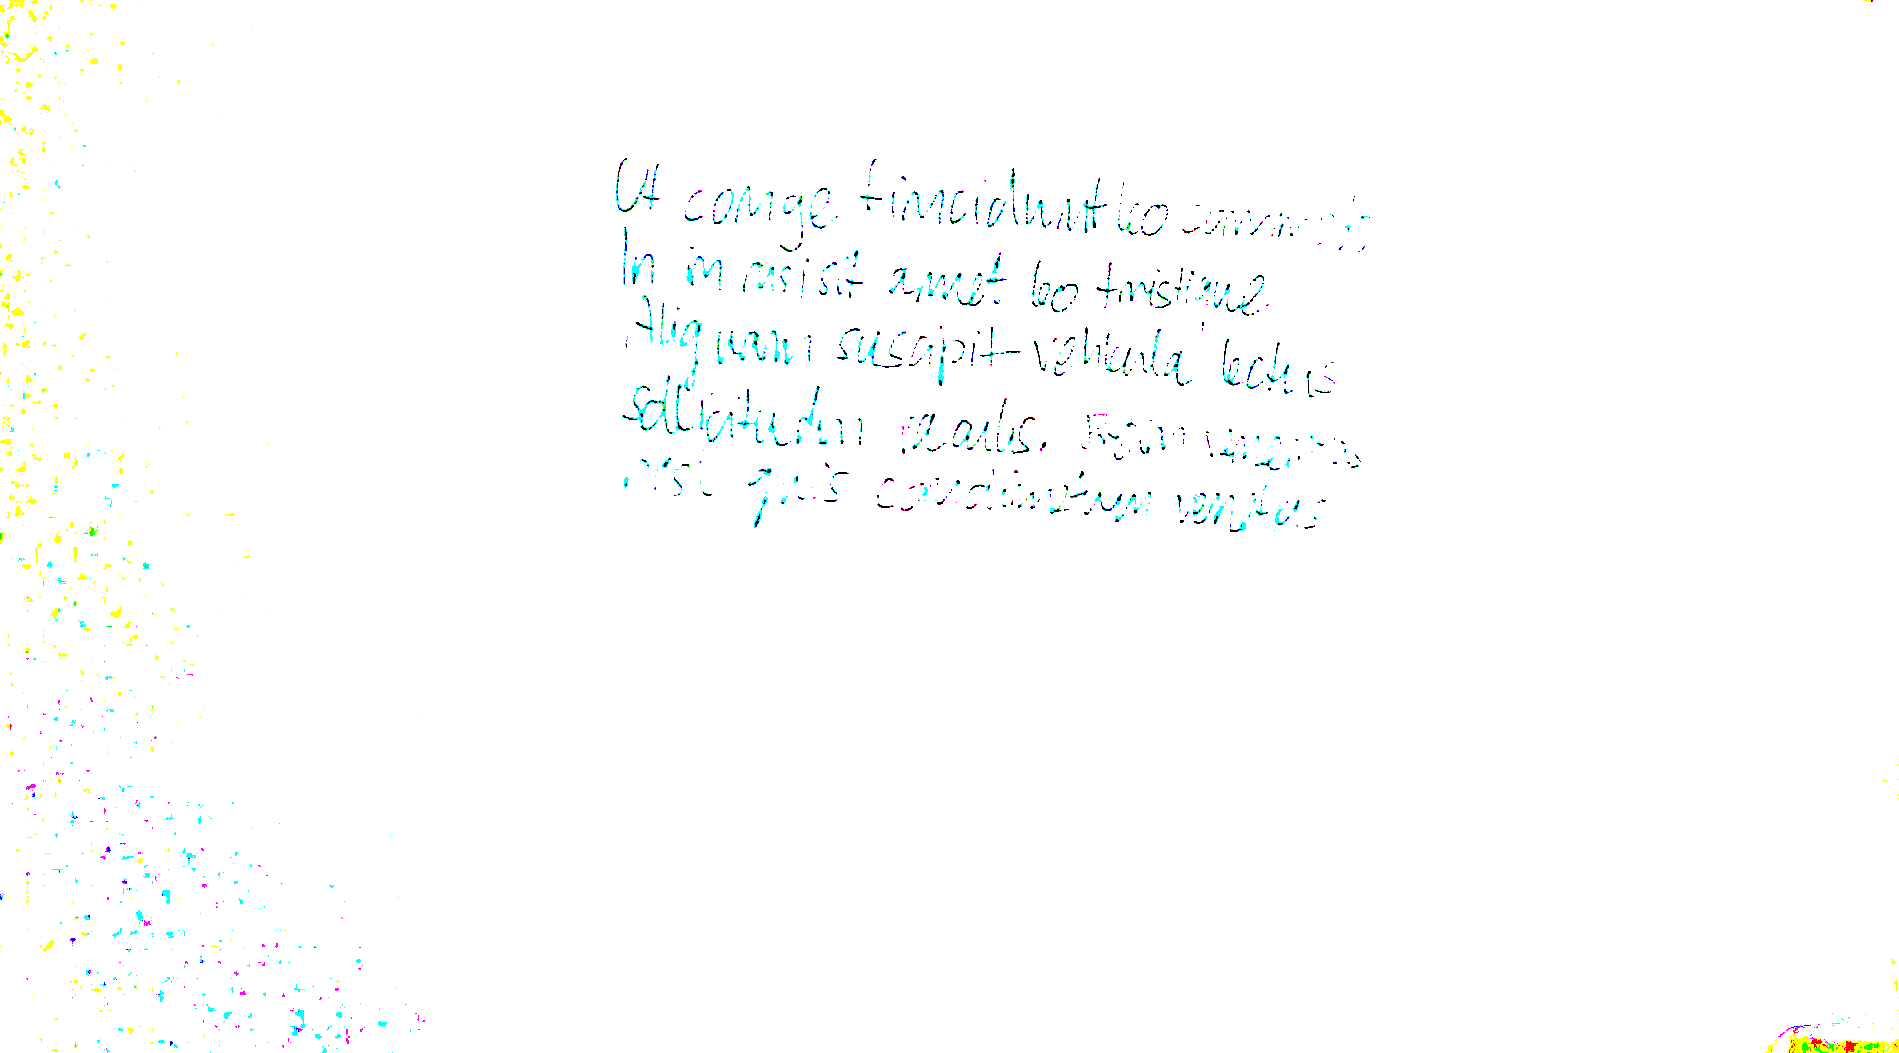 Ut conge tincidunt leo
In in nisi sit amet leo tristique
Aliquam suscipit vehicula lectus
sollicitudin iaculis.
nisi quis condimentum